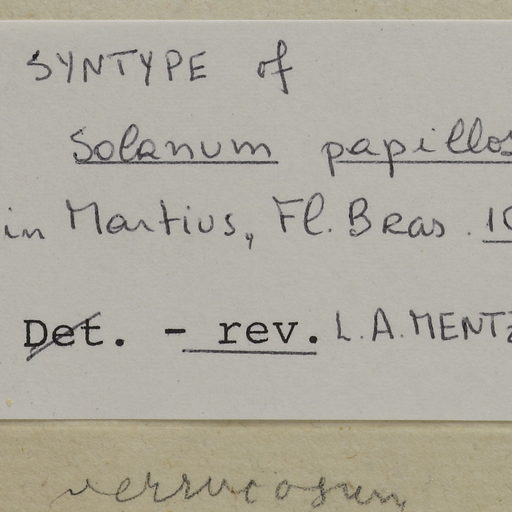 SYNTYPE of
Solanum papillos
in Martius, Fl. Bras. 10
Det. - rev. L.A. MENTZ
verrucosum